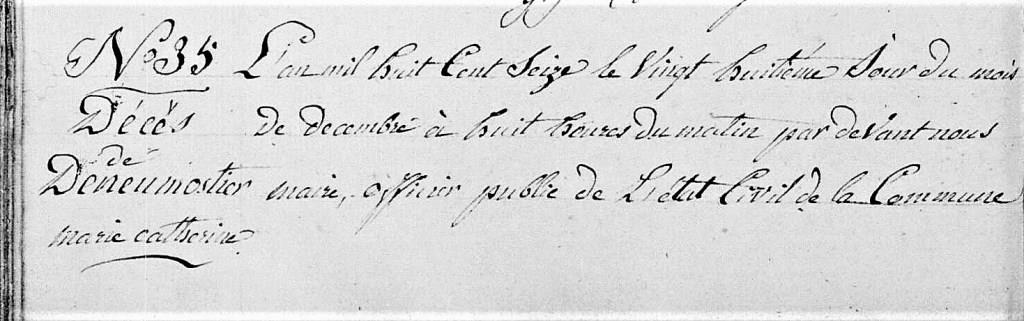 N.o 35
Décès
de
Deneumostier
marie catherine
L'an mil huit Cent Seize le Vingt huitième Jour du mois
de decembre à huit heures du matin par devant nous
maire, officier public de L'etat Civil de la Commune